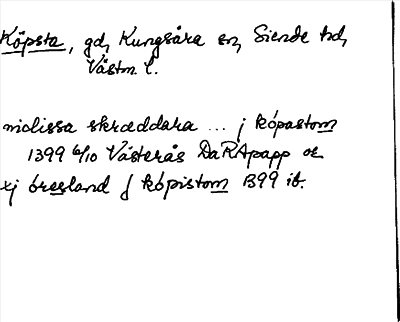 Köpsta, gd, Kungsåra sn, Siende hd,
Västm l.
niclissa skræddara ... j kópastom
1399 6/10 Västerås DaRApapp or
xj óresland j kópistom 1399 ib.